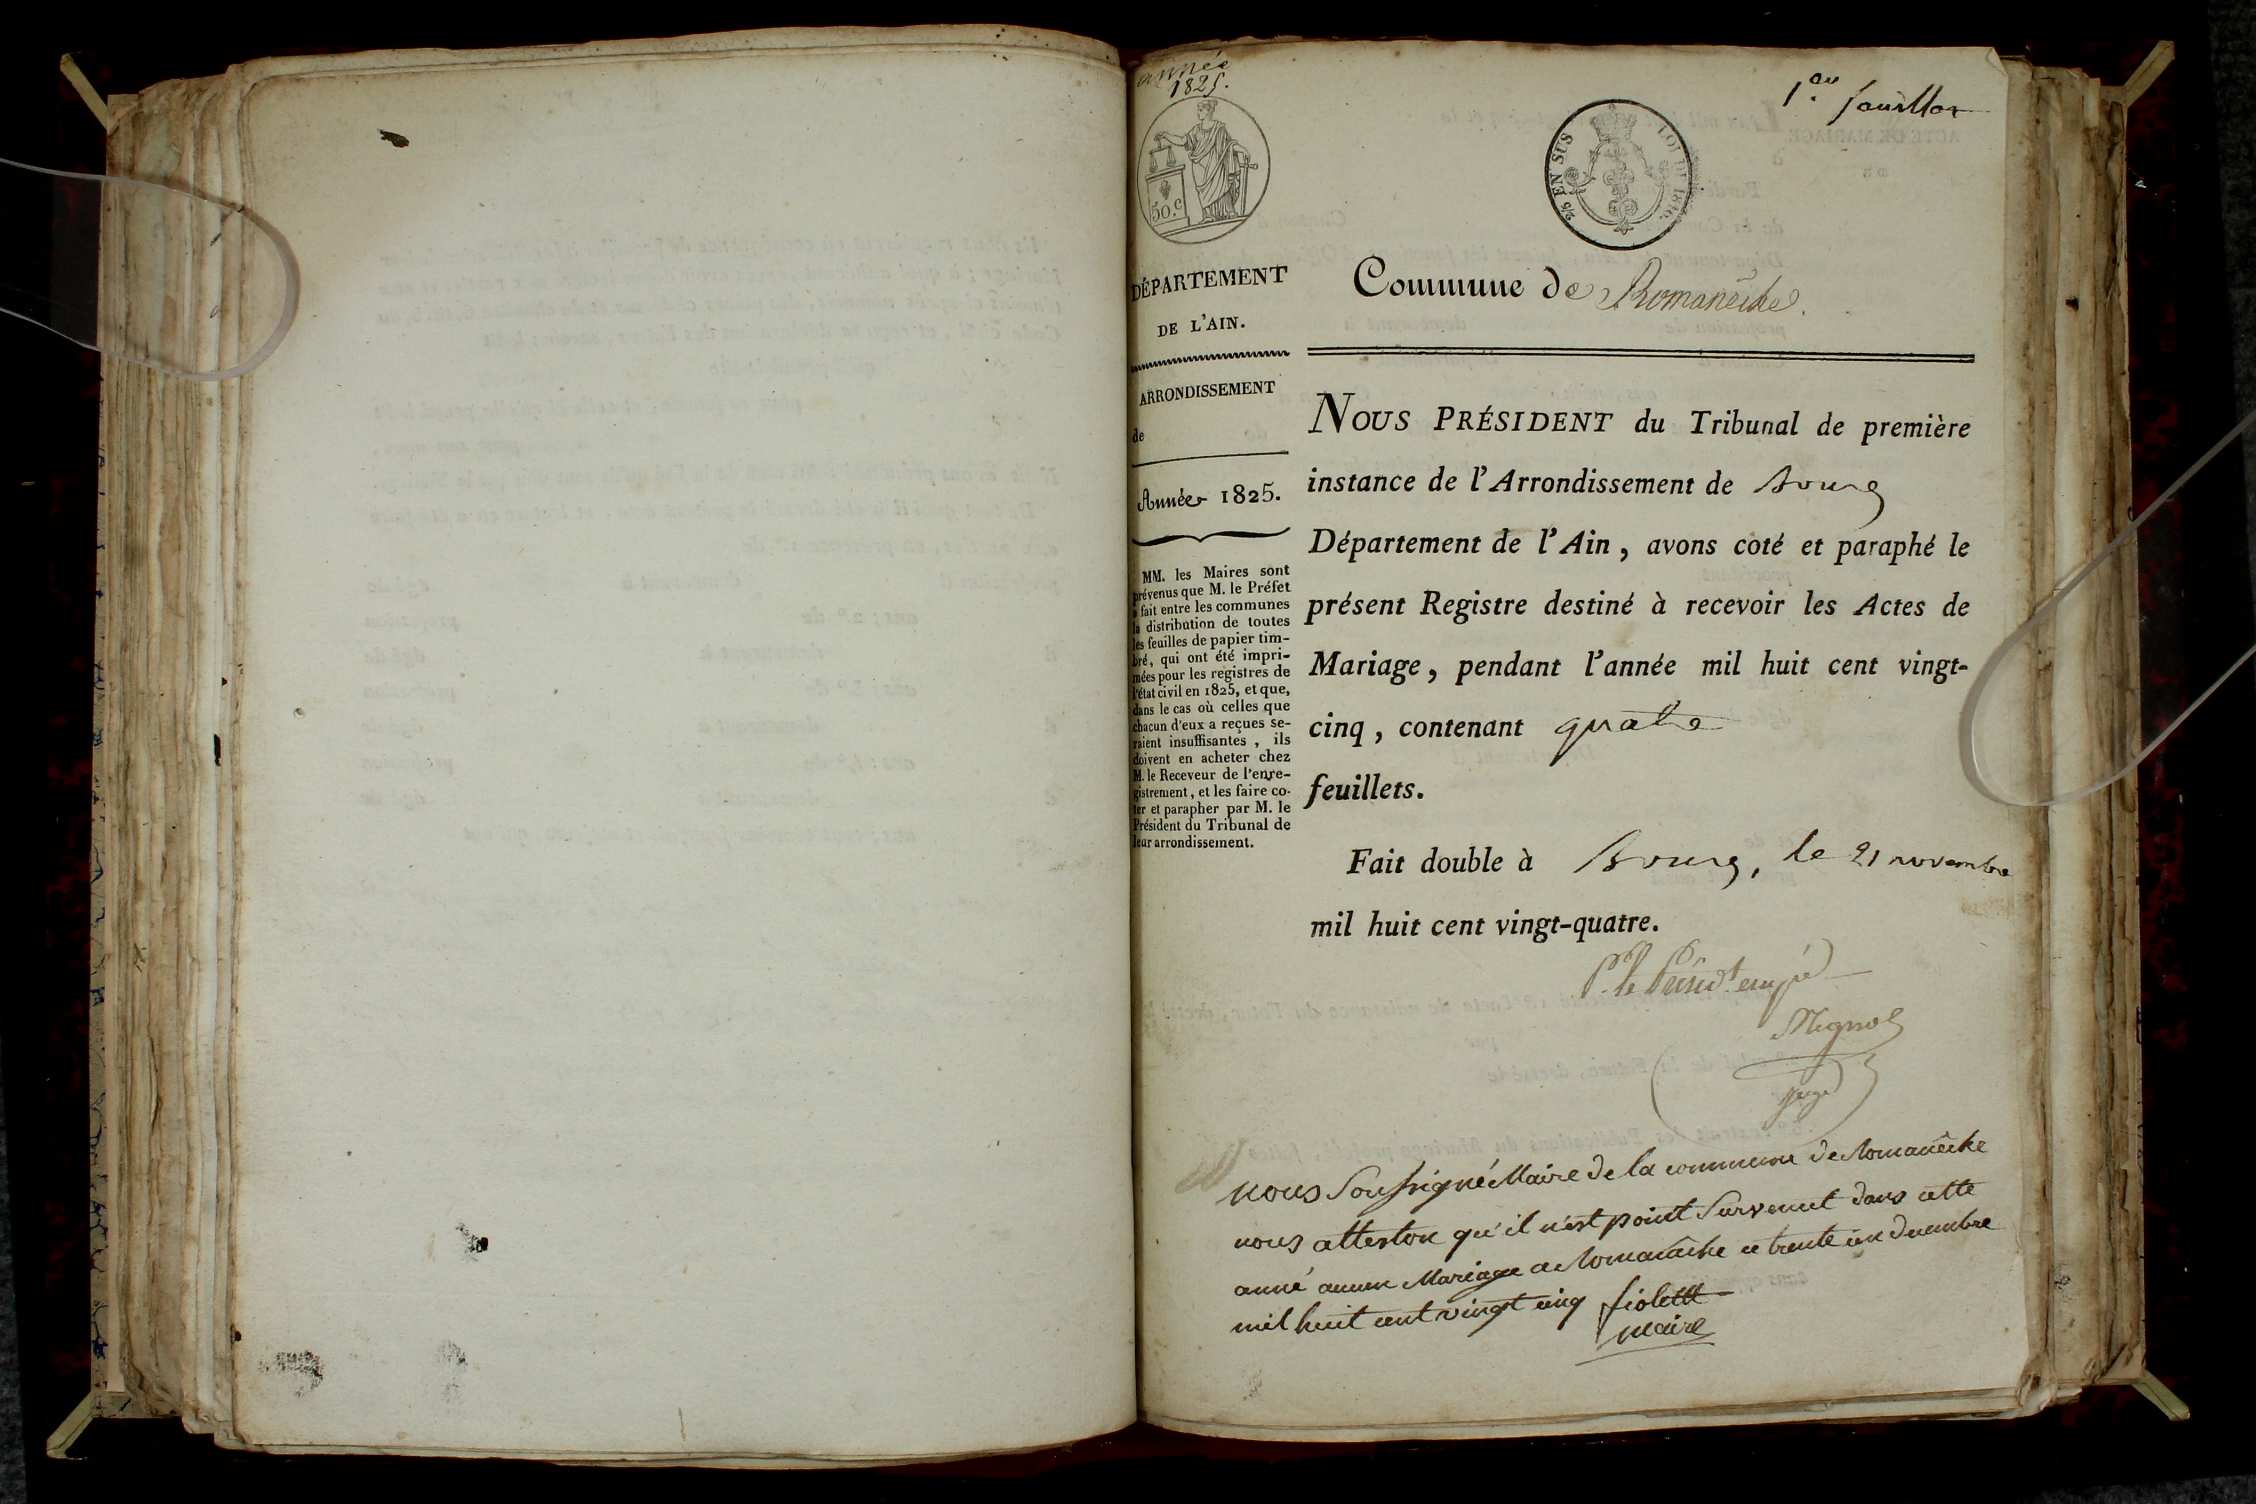 année
1825.
1.er feuillet
50.c
2/5 EN SUS
LOI DE 1816.
DÉPARTEMENT
DE L'AIN.
ARRONDISSEMENT
de
Année 1825.
MM. les Maires sont
prévenus que M. le Préfet
a fait entre les communes
la distribution de toutes
les feuilles de papier tim-
bré, qui ont été impri-
mées pour les registres de
l'état civil en 1825, et que,
dans le cas où celles que
chacun d'eux a reçues se-
raient insuffisantes, ils
doivent en acheter chez
M. le Receveur de l'enre-
gistrement, et les faire co-
ter et parapher par M. le
Président du Tribunal de
leur arrondissement.
Commune de Romanêche.
NOUS PRÉSIDENT du Tribunal de première
instance de l'Arrondissement de Bourg
Département de l'Ain, avons coté et paraphé le
présent Registre destiné à recevoir les Actes de
Mariage, pendant l'année mil huit cent vingt-
cinq, contenant quatre
feuillets.
Fait double à Bourg, le 21 novembre
mil huit cent vingt-quatre.
P. le Présid.t empé
Mignol
juge
nous Soussigné Maire de la commune de Romanêche
nous atteston qu'il n'est point Survenut dans cette
anné aucun Mariage a Romanêche ce trente un decembre
mil huit cent vingt cinq fiolett
maire